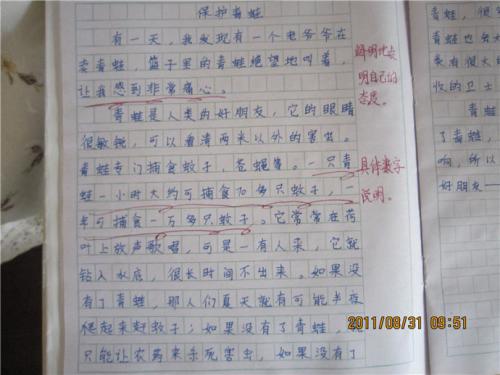 保护青蛙
有一天，我发现有一个老爷爷在
卖青蛙，笛子里的青蛙绝望地叫着，
让我感到非常痛心。
鲜明地表
明自己的
态度。
青蛙是人类的好朋友，它的眼睛
很敏锐，可以看清两米以外的害虫。
青蛙专门捕食蚊子，苍蝇等。一只青
蛙一小时大约可捕食70多只蚊子，一
年可捕食一万多只蚊子。它常常在荷
叶上放声歌唱，可是一有人来，它就
钻入水底，很长时间不出来。如果没
有了青蛙，那人们夏天就有可能半夜
爬起来赶蚊子；如果没有了青蛙，
只能让农药来杀死害虫，如果没有了
具体数字
说明。
青蛙，很
青蛙也
来有很大的
收的卫士
青蛙
了青蛙，
响，所以
好朋友—
2011/08/31 09:51